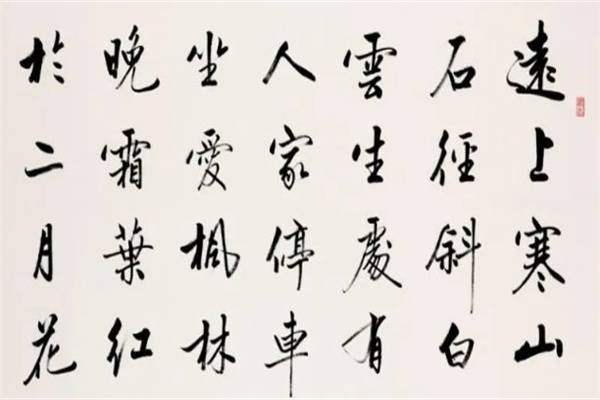 遠上寒山
石徑斜白
雲生處有
人家停車
坐愛楓林
晚霜葉紅
於二月花